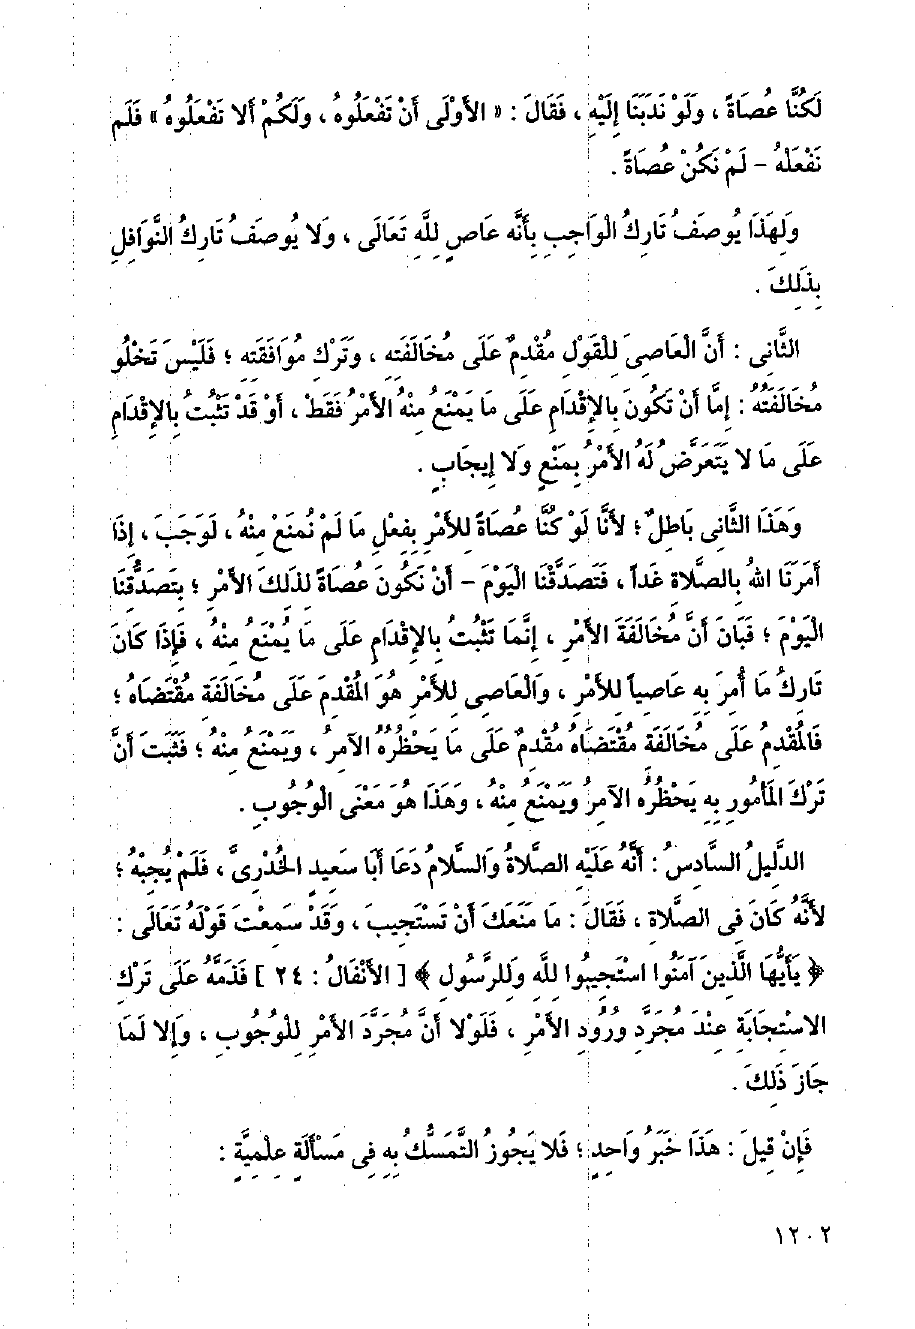 لَكُنَّا عُصَاةً ، وَلَوْ نَدَبَنَا إِلَيْهِ ، فَقَالَ : « الأَوْلَى أَنْ تَفْعَلُوهُ ، وَلَكُمْ أَلا تَفْعَلُوهُ » فَلَم
نَفْعَلْهُ – لَمْ نَكُنْ عُصَاةً .
وَلِهَذَا يُوصَفُ تَارِكُ الْوَاجِبِ بِأَنَّه عَاصٍ لِلَّهِ تَعَالَى ، وَلا يُوصَفُ تَارِكُ النَّوَافِلِ
بِذَلِكَ .
الثَّانِى : أَنَّ الْعَاصِىَ لِلْقَوْلِ مُقْدِمٌ عَلَى مُخَالَفَتِهِ ، وَتَرْكِ مُوَافَقَتِهِ ؛ فَلَيْسَ تَخْلُو
مُخَالَفَتُهُ : إِمَّا أَنْ تَكُونَ بِالإِقْدَامِ عَلَى مَا يَمْنَعُ مِنْهُ الأَمْرُ فَقَطْ ، أَوْ قَدْ تَثْبُتُ بِالإِقْدَامِ
عَلَى مَا لا يَتَعَرَّضُ لَهُ الأَمْرُ بِمَنْعٍ وَلا إِيجَابٍ .
وَهَذَا الثَّانِى بَاطِلٌ ؛ لأَنَّا لَوْ كُنَّا عُصَاةً لِلأَمْرِ بِفِعْلِ مَا لَمْ نُمْنَعْ مِنْهُ ، لَوَجَبَ ، إِذَا
أَمَرَنَا اللهُ بِالصَّلاةِ غَداً ، فَتَصَدَّقْنَا الْيَوْمَ – أَنْ نَكُونَ عُصَاةً لِذَلِكَ الأَمْرِ ؛ بِتَصَدُّقِنَا
الْيَوْمَ ؛ فَبَانَ أَنَّ مُخَالَفَةَ الأَمْرِ ، إِنَّمَا تَثْبُتُ بِالإِقْدَامِ عَلَى مَا يُمْنَعُ مِنْهُ ، فَإِذَا كَانَ
تَارِكُ مَا أُمِرَ بِهِ عَاصِياً لِلأَمْرِ ، وَالْعَاصِى لِلأَمْرِ هُوَ الْمُقْدِمَ عَلَى مُخَالَفَةِ مُقْتَضَاهُ ؛
فَالْمُقْدِمُ عَلَى مُخَالَفَةِ مُقْتَضَاهُ مُقْدِمٌ عَلَى مَا يَحْظُرُهُ الآمِرُ ، وَيَمْنَعُ مِنْهُ ؛ فَثَبَتَ أَنَّ
تَرْكَ الْمَأْمُورِ بِهِ يَحْظُرُهُ الآمِرُ وَيَمْنَعُ مِنْهُ ، وَهَذَا هُوَ مَعْنَى الْوُجُوبِ .
الدَّلِيلُ السَّادِسُ : أَنَّهُ عَلَيْهِ الصَّلاةُ وَالسَّلامُ دَعَا أَبَا سَعِيدٍ الْخُدْرِىَّ ، فَلَمْ يُجِبْهُ ؛
لأَنَّهُ كَانَ فِى الصَّلاةِ ، فَقَالَ : مَا مَنَعَكَ أَنْ تَسْتَجِيبَ ، وَقَدْ سَمِعْتَ قَوْلَهُ تَعَالَى :
﴿ يَأَيُّهَا الَّذِينَ آمَنُوا اسْتَجِيبُوا لِلَّهِ وَلِلرَّسُولِ ﴾ [ الأَنْفَالُ : ٢٤ ] فَذَمَّهُ عَلَى تَرْكِ
الاسْتِجَابَةِ عِنْدَ مُجَرَّدِ وُرُودِ الأَمْرِ ، فَلَوْلا أَنَّ مُجَرَّدَ الأَمْرِ لِلْوُجُوبِ ، وَإِلا لَمَا
جَازَ ذَلِكَ .
فَإِنْ قِيلَ : هَذَا خَبَرُ وَاحِدٍ ؛ فَلا يَجُوزُ التَّمَسُّكُ بِهِ فِى مَسْأَلَةٍ عِلْمِيَّةٍ :
١٢٠٢